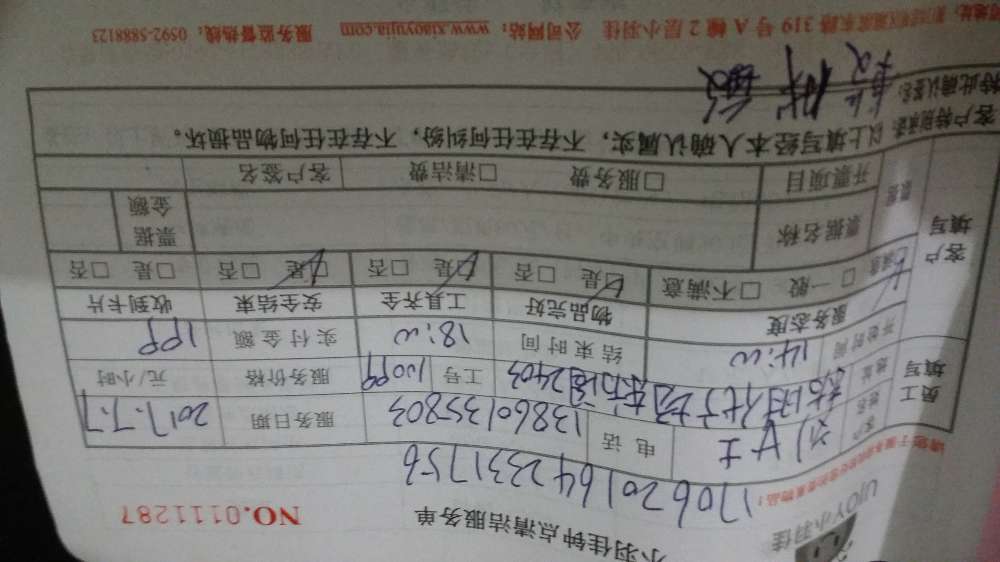 UJOY小羽佳
小羽佳钟点清洁服务单
NO.0111287
1706201642331756
客户姓名 刘女士 电话 13860135803 服务日期 2017.7.7
员工填写
地址 2403 工号 10099 服务价格 元/小时
开始时间 14:00 结束时间 18:00 实付金额 199
服务态度 物品完好 工具齐全 安全结束 收到卡片
满意 □一般 □不满意 □是 □否 □是 □否 □是 □否 □是 □否
客户填写
票据 票据名称 票据金额
开票项目 □服务费 □清洁费 客户签名
客户特别承诺: 以上填写经本人确认属实,不存在任何纠纷,不存在任何物品损坏。
特此确认签名:
319号A幢2层小羽佳 公司网站:www.xiaoyujia.com 服务监督热线:0592-5888123